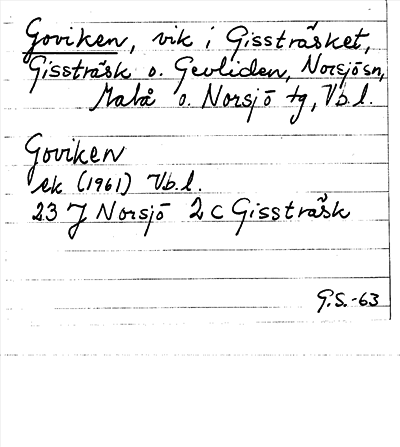 Goviken, vik i Gissträsket,
Gissträsk o. Gevliden, Norsjö sn,
Malå o. Norsjö tg, Vb.l.
Goviken
ek (1961) Vb.l.
23 J Norsjö 2 c Gissträsk
G.S.-63